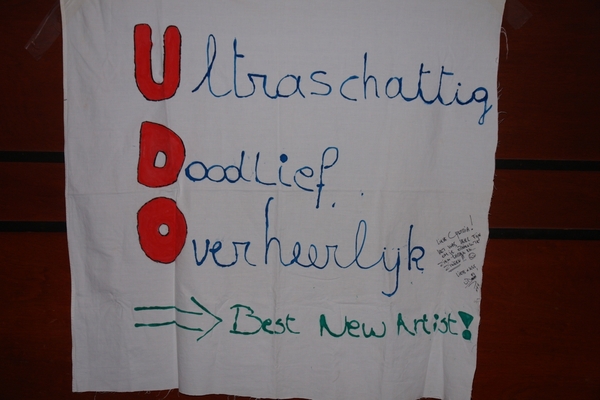 Ultraschattig
Doodlief
Overheerlijk
⇒ Best New Artist!